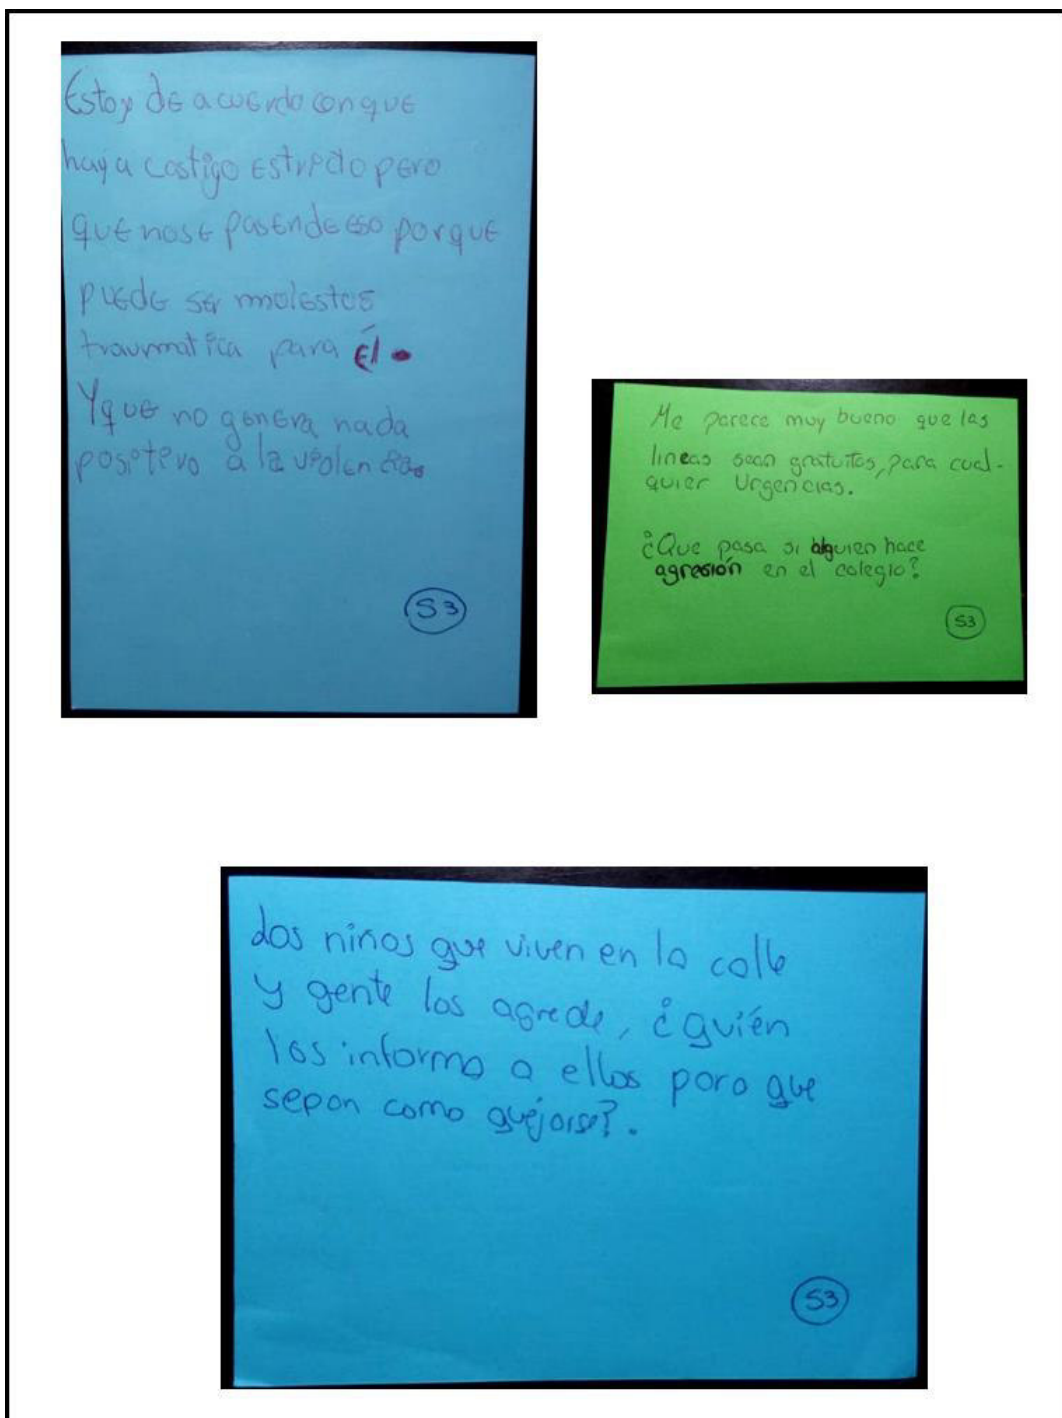 Estoy de acuerdo con que
haya castigo estricto pero
que no se pasen de eso porque
puede ser molesto
traumatica para Él.
Y que no genera nada
positivo a la violencia.
S3
Me parece muy bueno que las
lineas sean gratuitas, para cual-
quier Urgencias.
¿Que pasa si alguien hace
agresión en el colegio?
S3
Los niños que viven en la calle
y gente los agrede, ¿quién
los informa a ellos para que
sepan como quejarse?.
S3